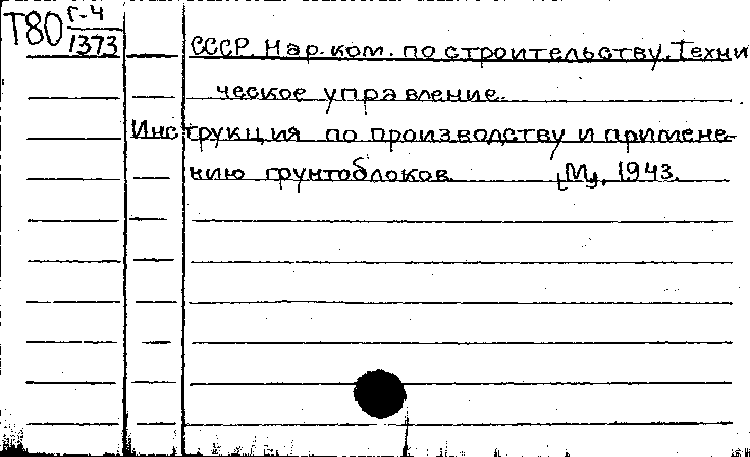 Т80 Г-4
1373
СССР. Нар. ком. по строительству. Техни
ческое управление.
Инструкция по производству и примене-
нию грунтоблоков. [М], 1943.